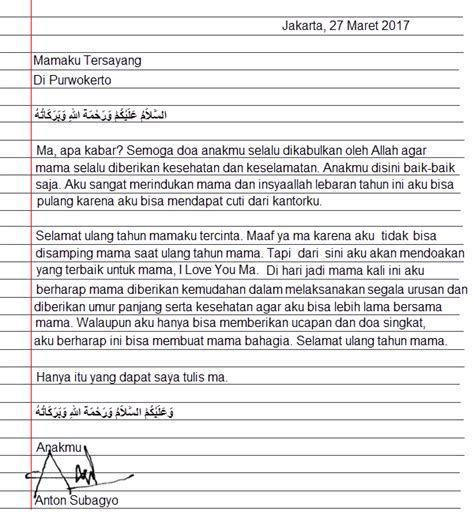 Jakarta, 27 Maret 2017
Mamaku Tersayang
Di Purwokerto
السَّلاَمُ عَلَيْكُمْ وَرَحْمَةُ اللهِ وَبَرَكَاتُهُ
Ma, apa kabar? Semoga doa anakmu selalu dikabulkan oleh Allah agar
mama selalu diberikan kesehatan dan keselamatan. Anakmu disini baik-baik
saja. Aku sangat merindukan mama dan insyaallah lebaran tahun ini aku bisa
pulang karena aku bisa mendapat cuti dari kantorku.
Selamat ulang tahun mamaku tercinta. Maaf ya ma karena aku tidak bisa
disamping mama saat ulang tahun mama. Tapi dari sini aku akan mendoakan
yang terbaik untuk mama, I Love You Ma. Di hari jadi mama kali ini aku
berharap mama diberikan kemudahan dalam melaksanakan segala urusan dan
diberikan umur panjang serta kesehatan agar aku bisa lebih lama bersama
mama. Walaupun aku hanya bisa memberikan ucapan dan doa singkat,
aku berharap ini bisa membuat mama bahagia. Selamat ulang tahun mama.
Hanya itu yang dapat saya tulis ma.
وَعَلَيْكُمُ السَّلاَمُ وَرَحْمَةُ اللهِ وَبَرَكَاتُهُ
Anakmu
Anton Subagyo